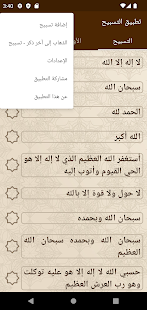 3:40
تطبيق التسبيح
التسبيح
الأ
إضافة تسبيح
الذهاب إلى آخر ذكر - تسبيح
الإعدادات
مشاركة التطبيق
عن هذا التطبيق
لا إله إلا الله
سبحان الله
الحمد لله
الله أكبر
أستغفر الله العظيم الذي لا إله إلا هو
الحي القيوم وأتوب إليه
لا حول ولا قوة إلا بالله
سبحان الله وبحمده
سبحان الله وبحمده سبحان الله
العظيم
حسبي الله لا إله إلا هو عليه توكلت
وهو رب العرش العظيم